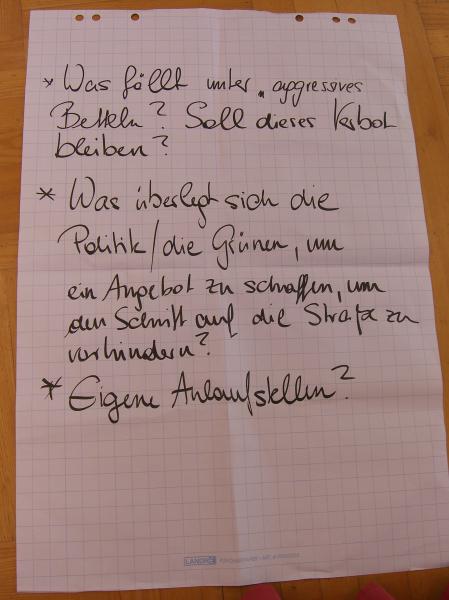 * Was fällt unter „aggressives
Betteln? Soll dieses Verbot
bleiben?
* Was überlegt sich die
Politik/die Grünen, um
ein Angebot zu schaffen, um
den Schritt auf die Straße zu
verhindern?
* Eigene Anlaufstellen?
LANDRÉ